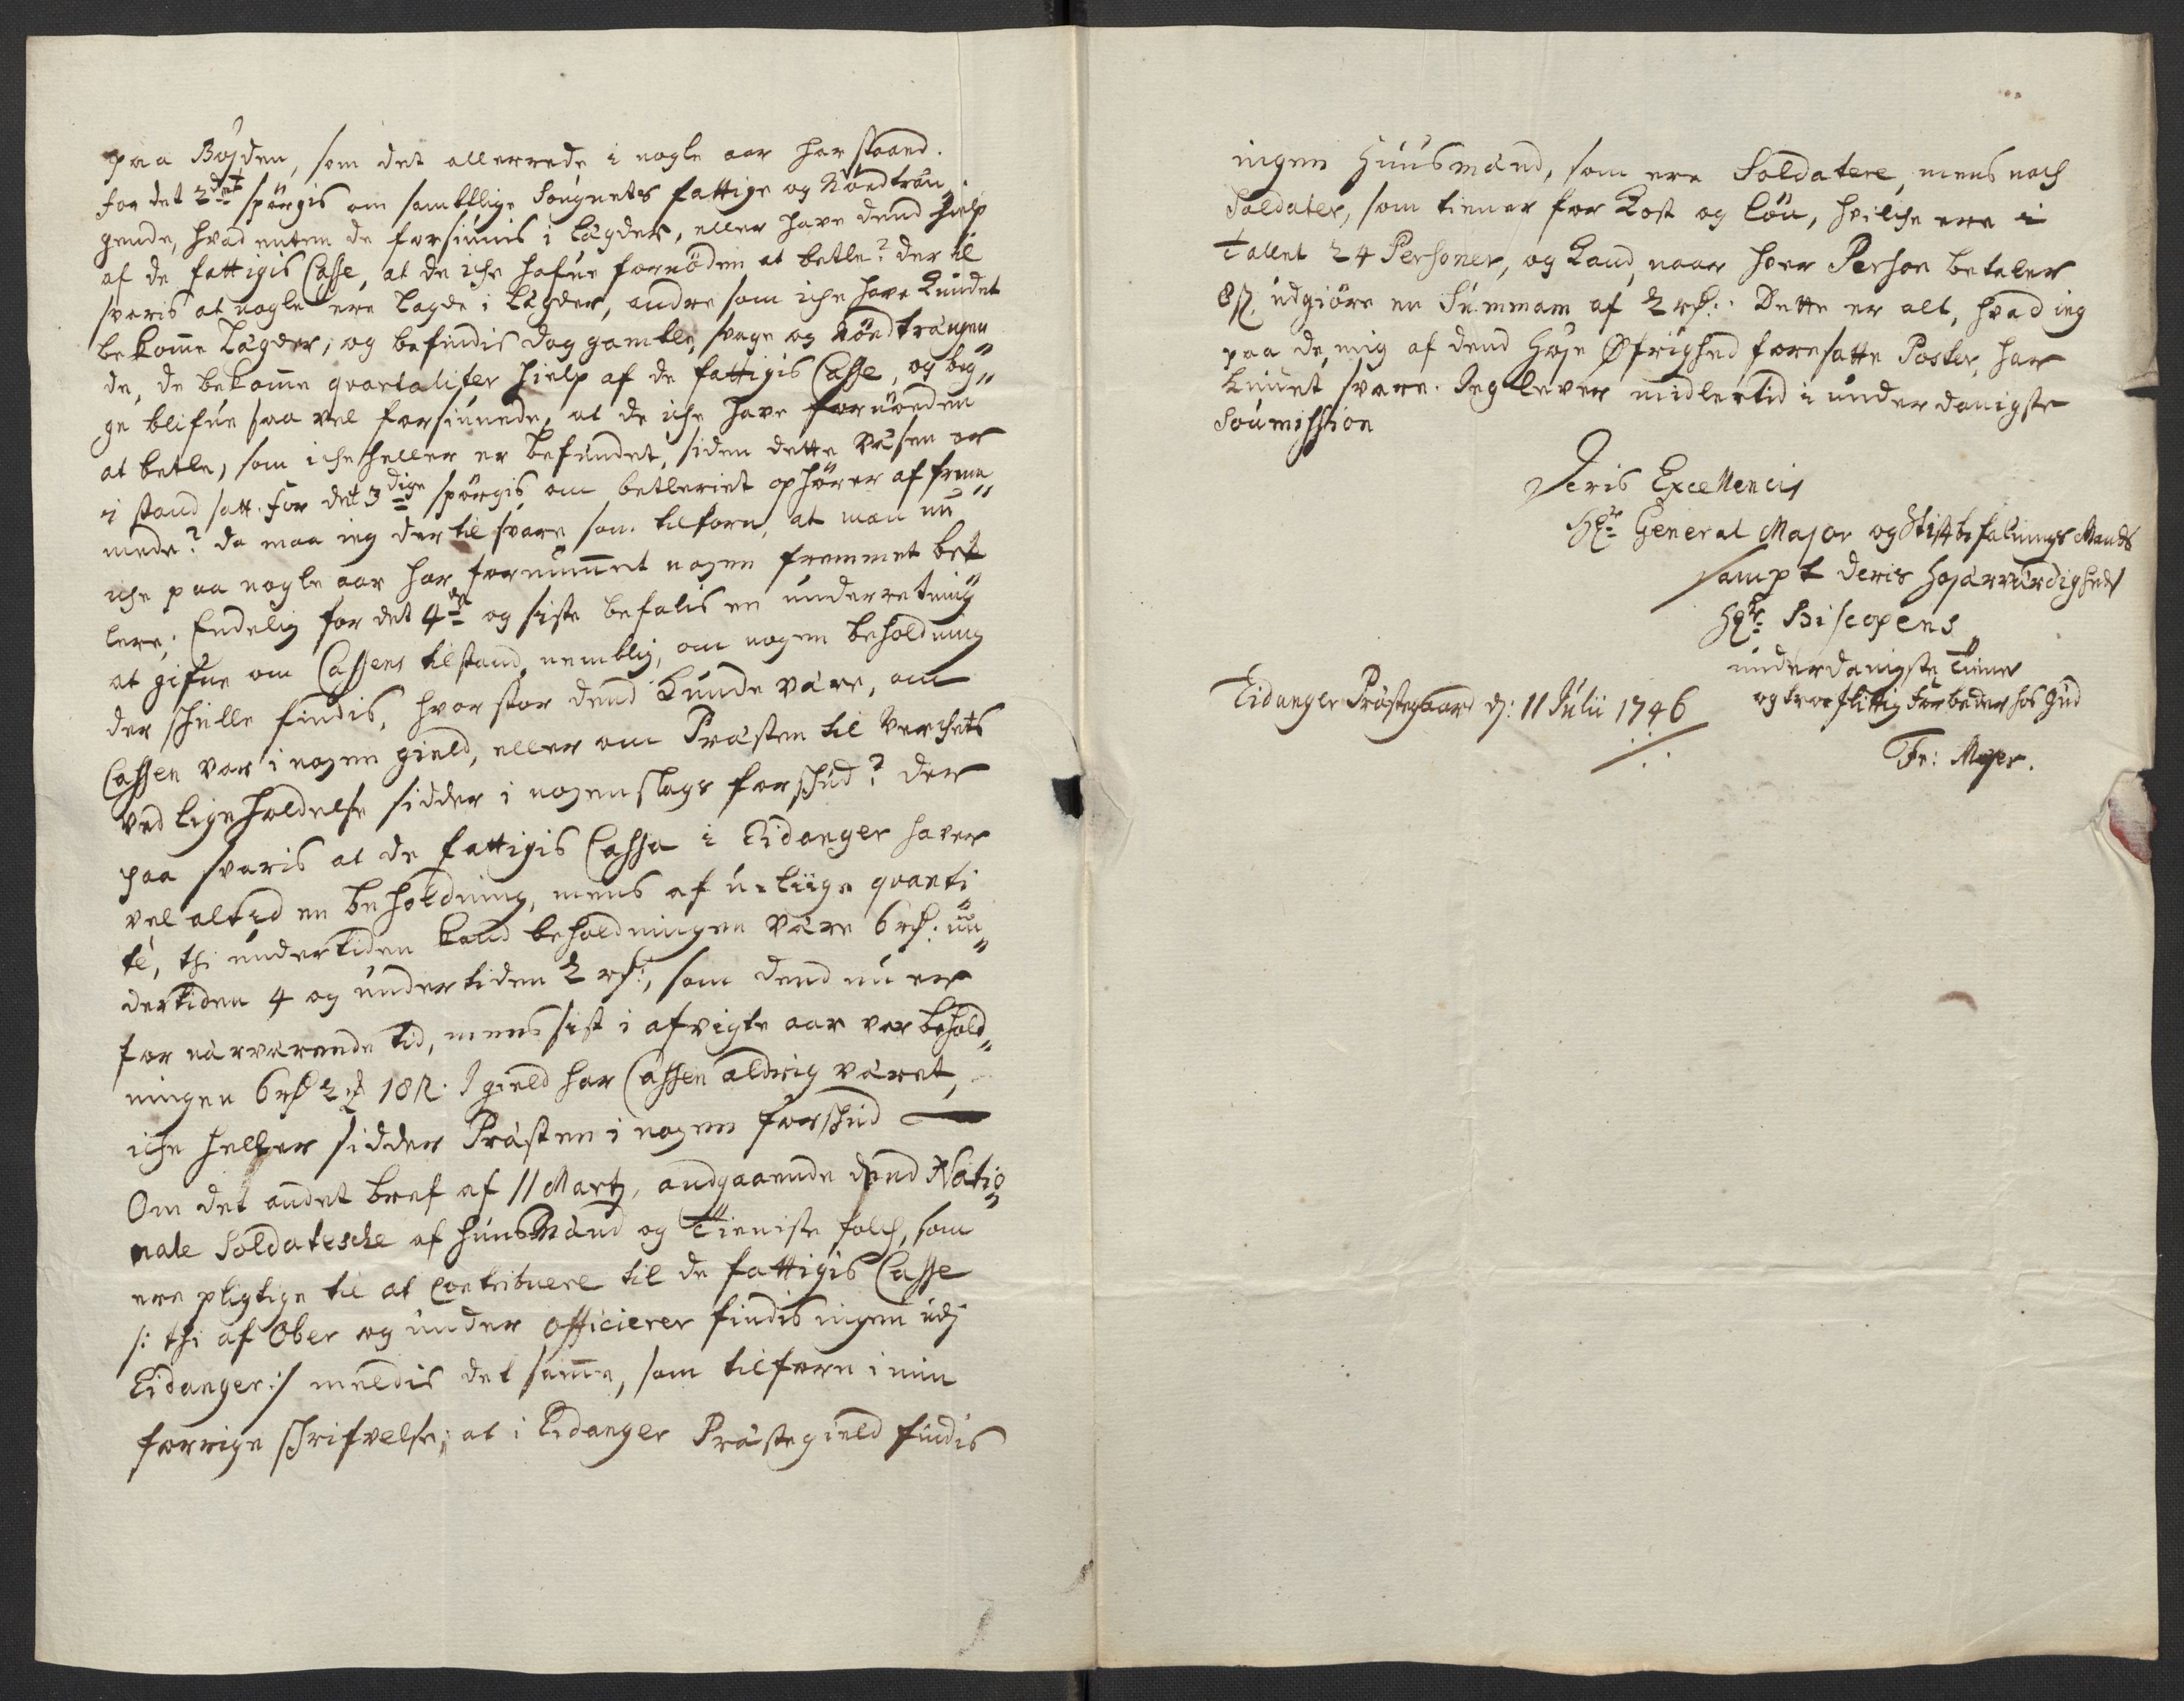 paa Bøjden, som det allerrede i nogle aar har staaed.
for det 2det spørgis om samtllige Sougnets fattige og Nöedträn„
gende, hvad enten de forsiunis i Lägder, eller have dend Hielp
af de fattigis Casse, at de iche hafue fornöden at betle? der til
svaris at nogle ere lagde i Lägder, andre som iche have Kundet
bekome Lägder, og befindis dog gamble, svage og Nöedträngen
de, de bekome qvartaliter Hielp af de fattigis Casse, og beg„
ge blifue saa vel forsiunede, at de iche have fornöeden
at betle, som iche heller er befundet, siden dette Väsen er
i stand satt. for det 3dige spörgis om betleriet ophörer af frem„
mede? da maa ieg der til svare som tilforn, at man nu
iche paa nogle aar har fornummet nogen fremmet bet
lere; Endelig for det 4de og siste befalis en underretning
at gifue om Cassens tilstand, nemblig, om nogen beholdning
der schulle findis, hvor stor dend kunde väre, om
Cassen var i nogen gield, eller om Prästen til Verchets
vedligeholdelse sidder i nogen slags forschud? Der
paa svaris at de fattigis Cassa i Eidanger haver
vel altid en beholdning, mens af u-liige qvanti
té, thi undertiden kand beholdningen väre 6 rd: un„
dertiden 4 og undertiden 2 rd:, som dend nu er
for närvärende tid, mens sist i afvigte aar var behold„
ningen 6 rd 2 ort 18 s. I gield har Cassen aldrig väret,
iche heller sidder Prästen i nogen forschud
Om det andet bref af 11 Martz, andgaaende dend Natio„
nale Soldatesche af HuusMänd og Tieniste folch, som
ere pligtige til at Contribuere til de fattigis Casse
/: thi af Ober og under officierer findis ingen udj
Eidanger :/ meldis det same, som tilforn i min
forrige schrifvelse; at i Eidanger Prästegield findis
ingen Huusmänd, som ere Soldatere, mens noch
Soldater, som tiener for Kost og Lön, hvilche ere i
Tallet 24 Personer, og Kand, naar hver Person betaler
8 s. udgiöre en Summam af 2 rd: Dette er alt, hvad ieg
paa de, mig af dend Høje Øfrighed foresatte Poster, har
kundet svare. Jeg lever midlertid i underdanigste
Soumission
Deris Excellencis
Hr: General Major og StiftbefalningsMands
sampt deris Højärvärdigheds
Hr: Biscopens
underdanigste Tiener
og troeflittig forbeder hos Gud
Eidanger Prästegaard d: 11 Julii 1746
Fr: Mejer.